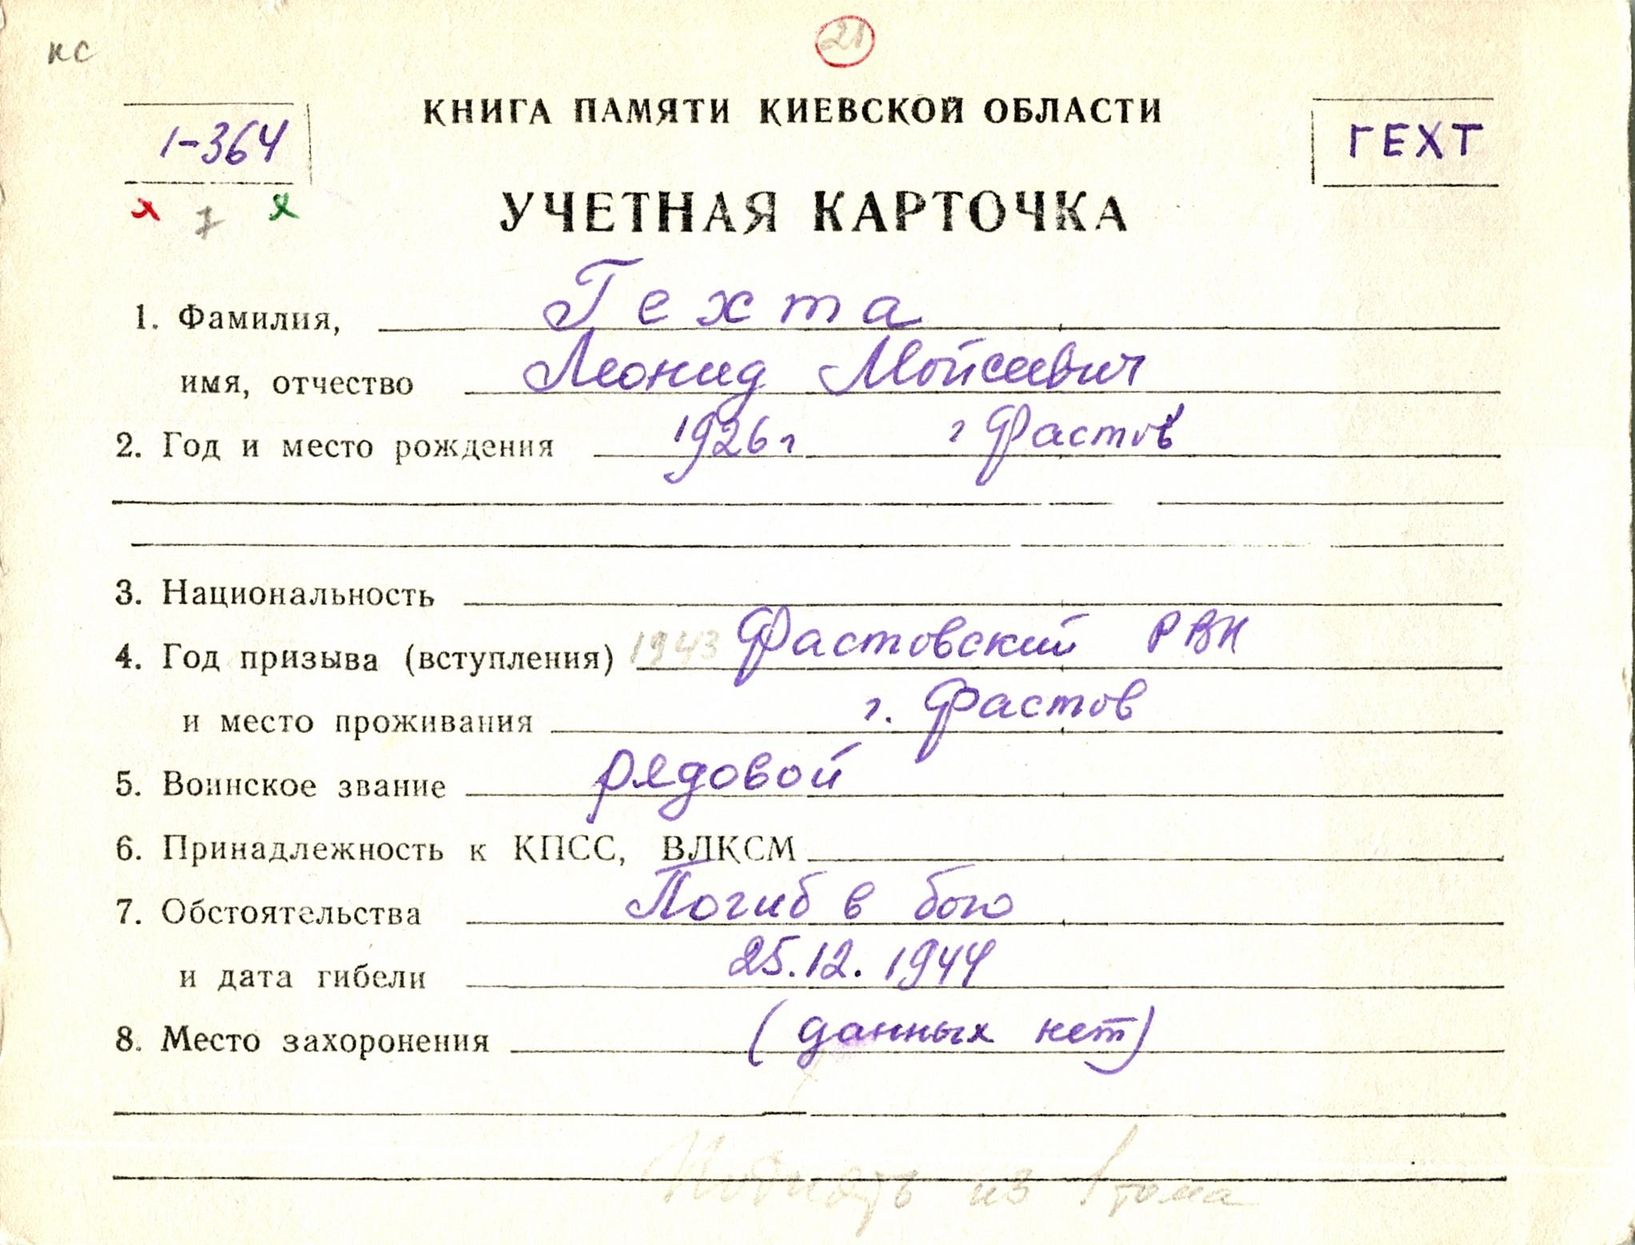 кс
21
КНИГА ПАМЯТИ КИЕВСКОЙ ОБЛАСТИ
1-364
ГЕХТ
7
УЧЕТНАЯ КАРТОЧКА
1. Фамилия, Гехта
имя, отчество Леонид Мойсеевич
2. Год и место рождения 1926 г г Фастов
3. Национальность
4. Год призыва (вступления) 1943 Фастовский РВК
и место проживания г. Фастов
5. Воинское звание рядовой
6. Принадлежность к КПСС, ВЛКСМ
7. Обстоятельства Погиб в бою
и дата гибели 25.12.1944
8. Место захоронения (данных нет)
из 1 тома